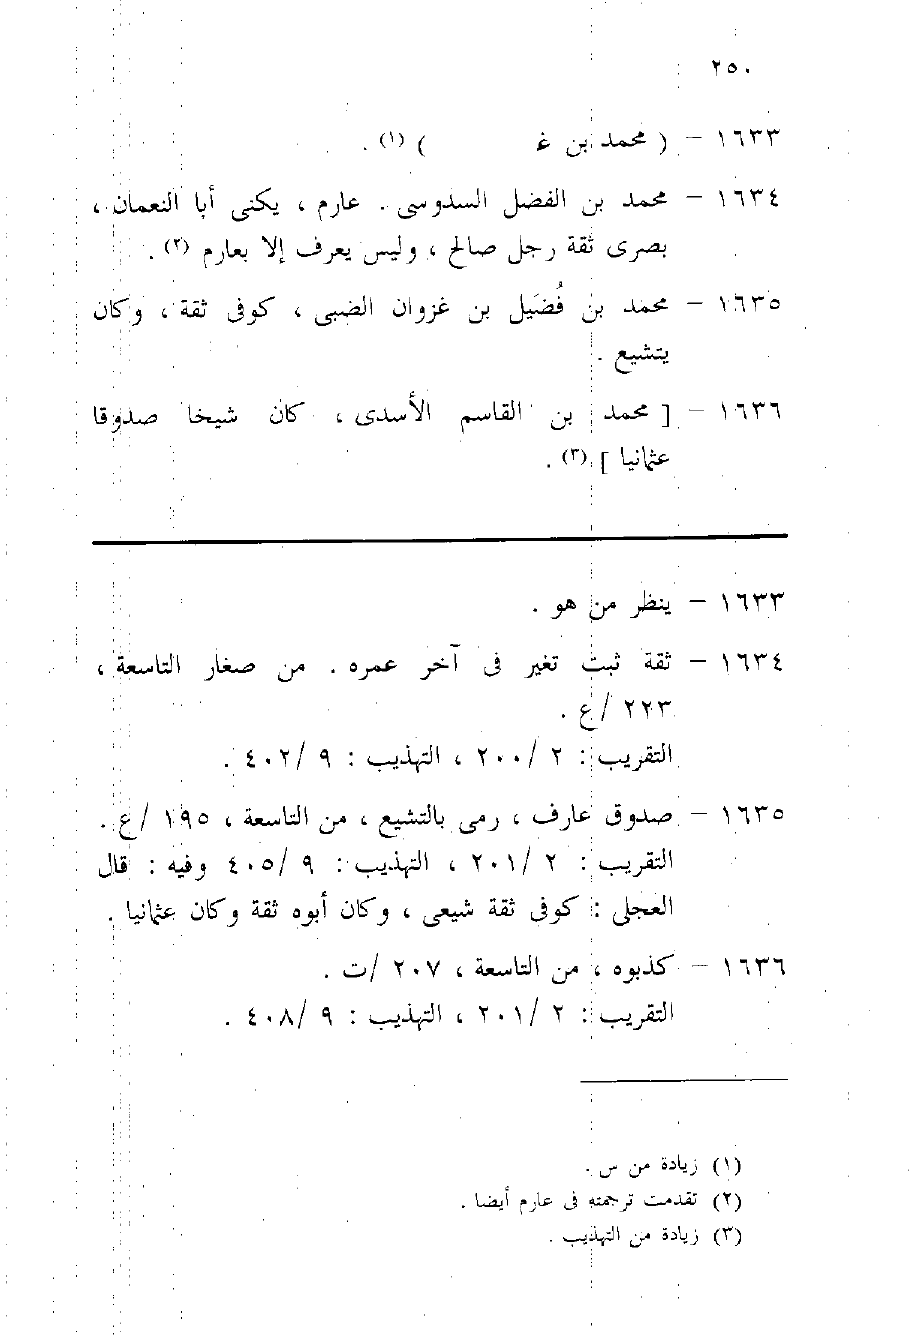 ٢٥٠
١٦٣٣ – ( محمد بن غ ) (١) .
١٦٣٤ – محمد بن الفضل السدوسى . عارم ، يكنى أبا النعمان ،
بصرى ثقة رجل صالح ، وليس يعرف إلا بعارم (٢) .
١٦٣٥ – محمد بن فُضَيل بن غزوان الضبى ، كوفى ثقة ، وكان
يتشيع .
١٦٣٦ – [ محمد بن القاسم الأسدى ، كان شيخا صدوقا
عثمانيا ] (٣) .
١٦٣٣ – ينظر من هو .
١٦٣٤ – ثقة ثبت تغير فى آخر عمره . من صغار التاسعة ،
٢٢٣ /ع .
التقريب : ٢ /٢٠٠ ، التهذيب : ٩ /٤٠٢ .
١٦٣٥ – صدوق عارف ، رمى بالتشيع ، من التاسعة ، ١٩٥ /ع .
التقريب : ٢ /٢٠١ ، التهذيب : ٩ /٤٠٥ وفيه : قال
العجلى : كوفى ثقة شيعى ، وكان أبوه ثقة وكان عثمانيا .
١٦٣٦ – كذبوه ، من التاسعة ، ٢٠٧ /ت .
التقريب : ٢ /٢٠١ ، التهذيب : ٩ /٤٠٨ .
(١) زيادة من س .
(٢) تقدمت ترجمته فى عارم أيضا .
(٣) زيادة من التهذيب .